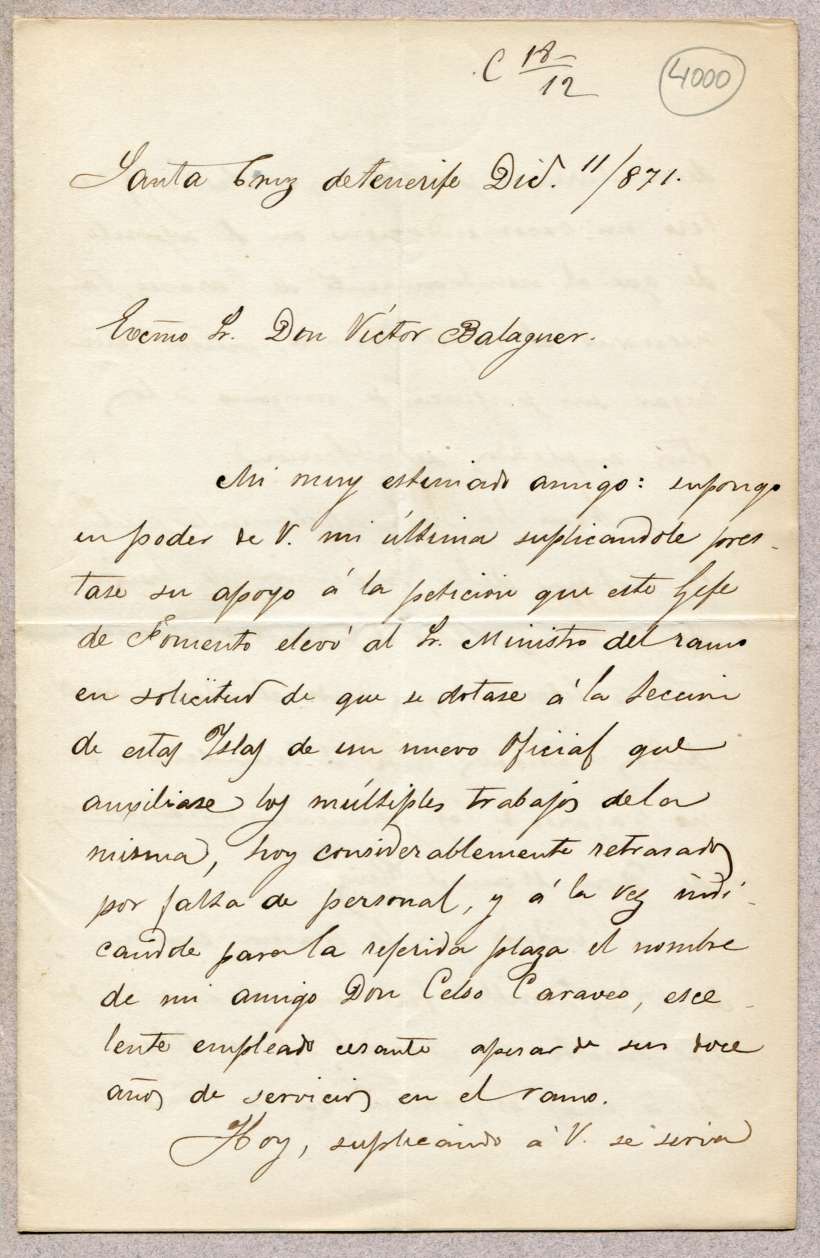 C 18/12
4000
Santa Cruz de Tenerife Dic.e 11/871.
Excmo Sr. Don Víctor Balaguer.
Mi muy estimado amigo: supongo
en poder de V. mi última suplicandole pres-
tase su apoyo á la peticion que este Gefe
de Fomento elevó al Sr. Ministro del ramo
en solicitud de que se dotase á la Seccion
de estas Yslas de un nuevo Oficial que
auxiliase los múltiples trabajos de la
misma, hoy considerablemente retrasados
por falta de personal, y á la vez indi-
candole para la referida plaza el nombre
de mi amigo Don Celso Caraveo, esce-
lente empleado cesante apesar de sus doce
años de servicios en el ramo.
Hoy, suplicando á V. se sirva